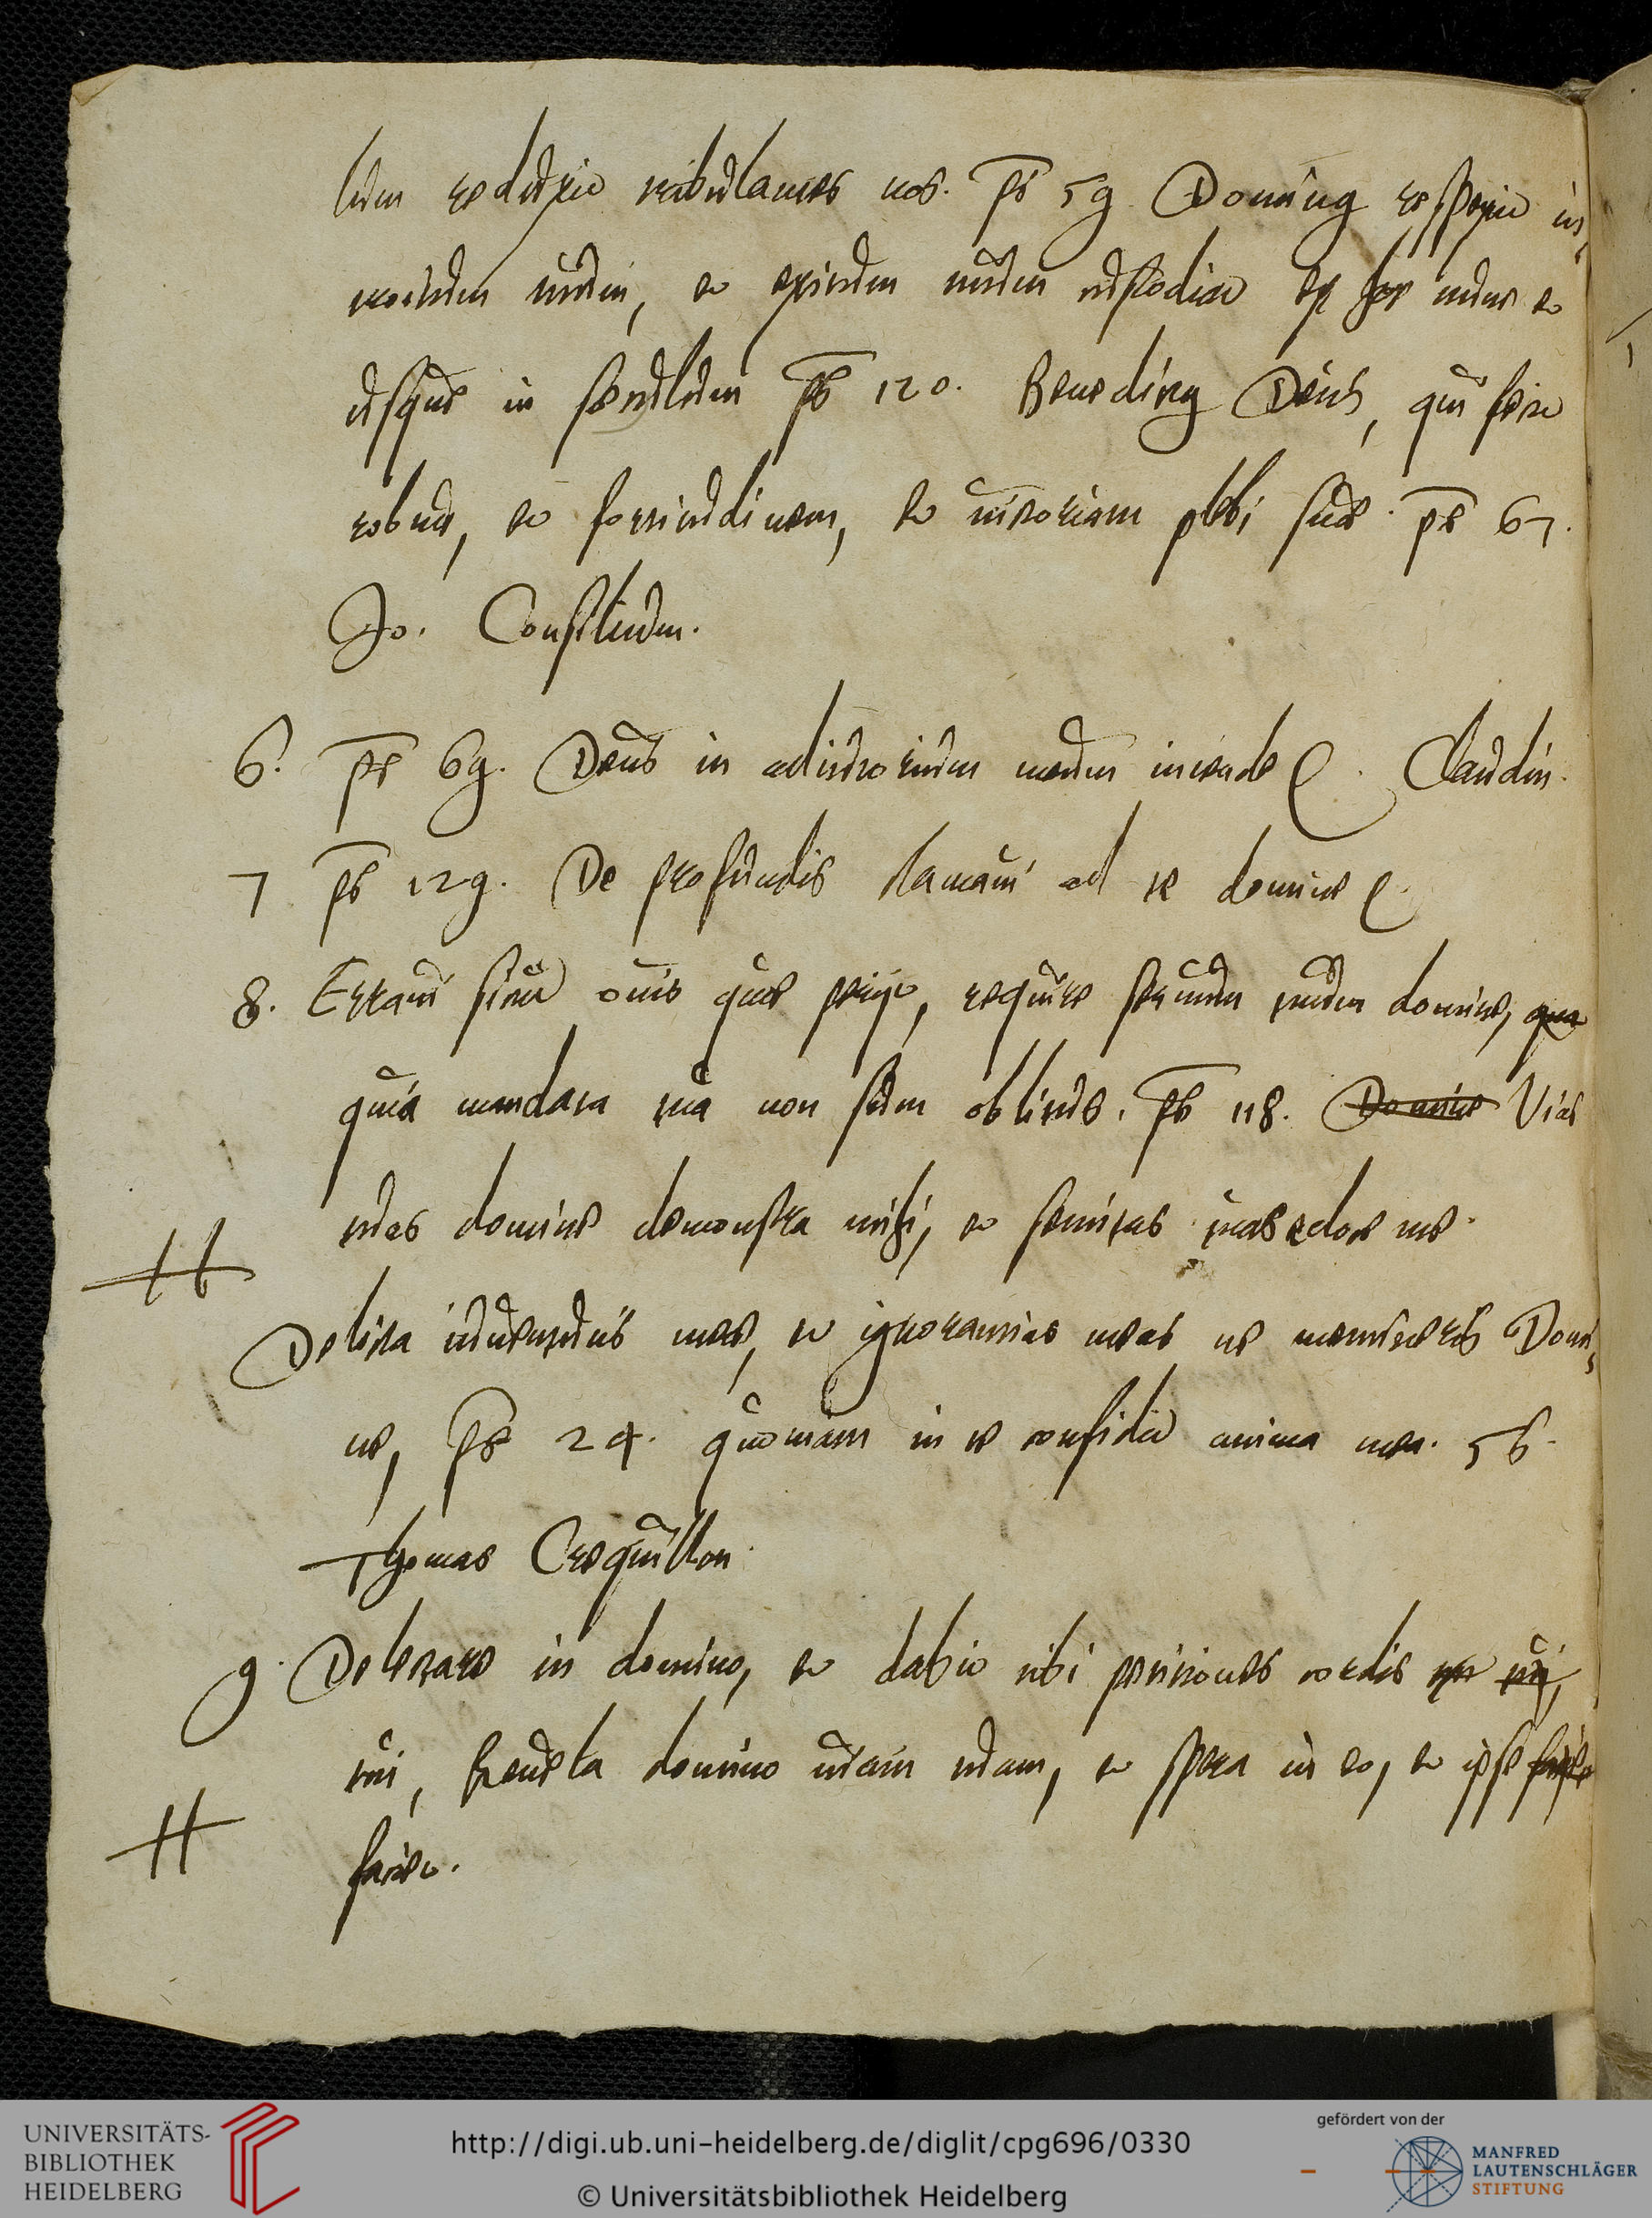 lum reduxit tribulantes nos. ps 59 Dominus respexit in,
troitum tuum, et exitum tuum custodiat ex hoc nunc et
usque in seculum ps 120. Benedictus Deus, qui fecit
robur, et fortitudinem, et victoriam plebi suae. ps 67.
Jo. Consilium.
6. ps 69. Deus in adiutorium meum intende. Claudin.
7 ps 129. De profundis clamavi ad te domine
8. Erravi sicut ovis quae periit, require servum tuum domine, qua
quia mandata tua non sum oblitus. ps 118. Domine Vias
tuas domine demonstra mihi, et semitas tuas edoce me.
Delicta iuventutis meae, et ignorantias meas ne memineris Domi,
ne, ps 24. quoniam in te confidit anima mea. 56.
Thomas Crequillon.
9. Delectare in domino, et dabit tibi petitiones cordis tui,
tui, Revela domino viam tuam, et spera in eo, et ipse faciet
faciet.
UNIVERSITÄTS-
BIBLIOTHEK
HEIDELBERG
http://digi.ub.uni-heidelberg.de/diglit/cpg696/0330
© Universitätsbibliothek Heidelberg
gefördert von der
MANFRED
LAUTENSCHLÄGER
STIFTUNG